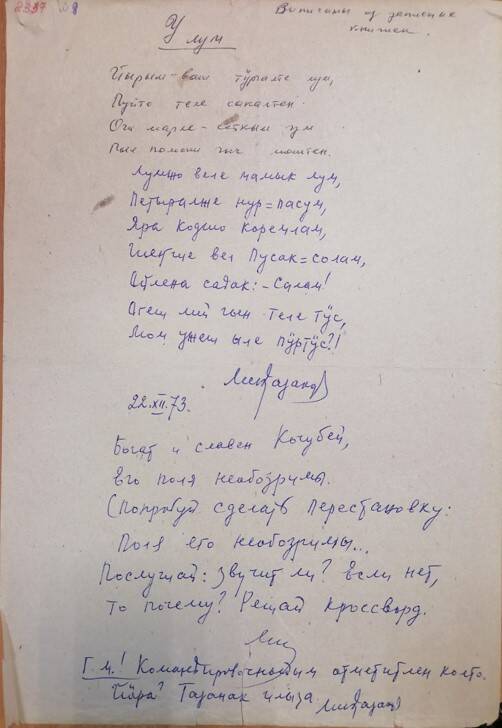 2337
Выписаны из записных
книжек.
У лум
Йырым-ваш тӱрлемте лум,
Пуйто теле
Ош марле-
Лумжо веле мамык лум,
Петыралже нур=пасум,
Яра кодшо коремлам,
Шеҥгче вел Пусак=солам,
Ойлена садак:-Салам!
Огеш лий гын теле тӱс,
Мом ужеш ыле пӱртӱс?!
22.XII.73.
Богат и славен Кочубей,
Его поля необозримы.
(Попробуй сделать перестановку:
Поля его необозримы...
Послушай: звучит ли? Если нет,
то почему? Решай кроссворд.
Г.М.! Командировочным отметитлен колто.
Йӧра? Таганак илыза.